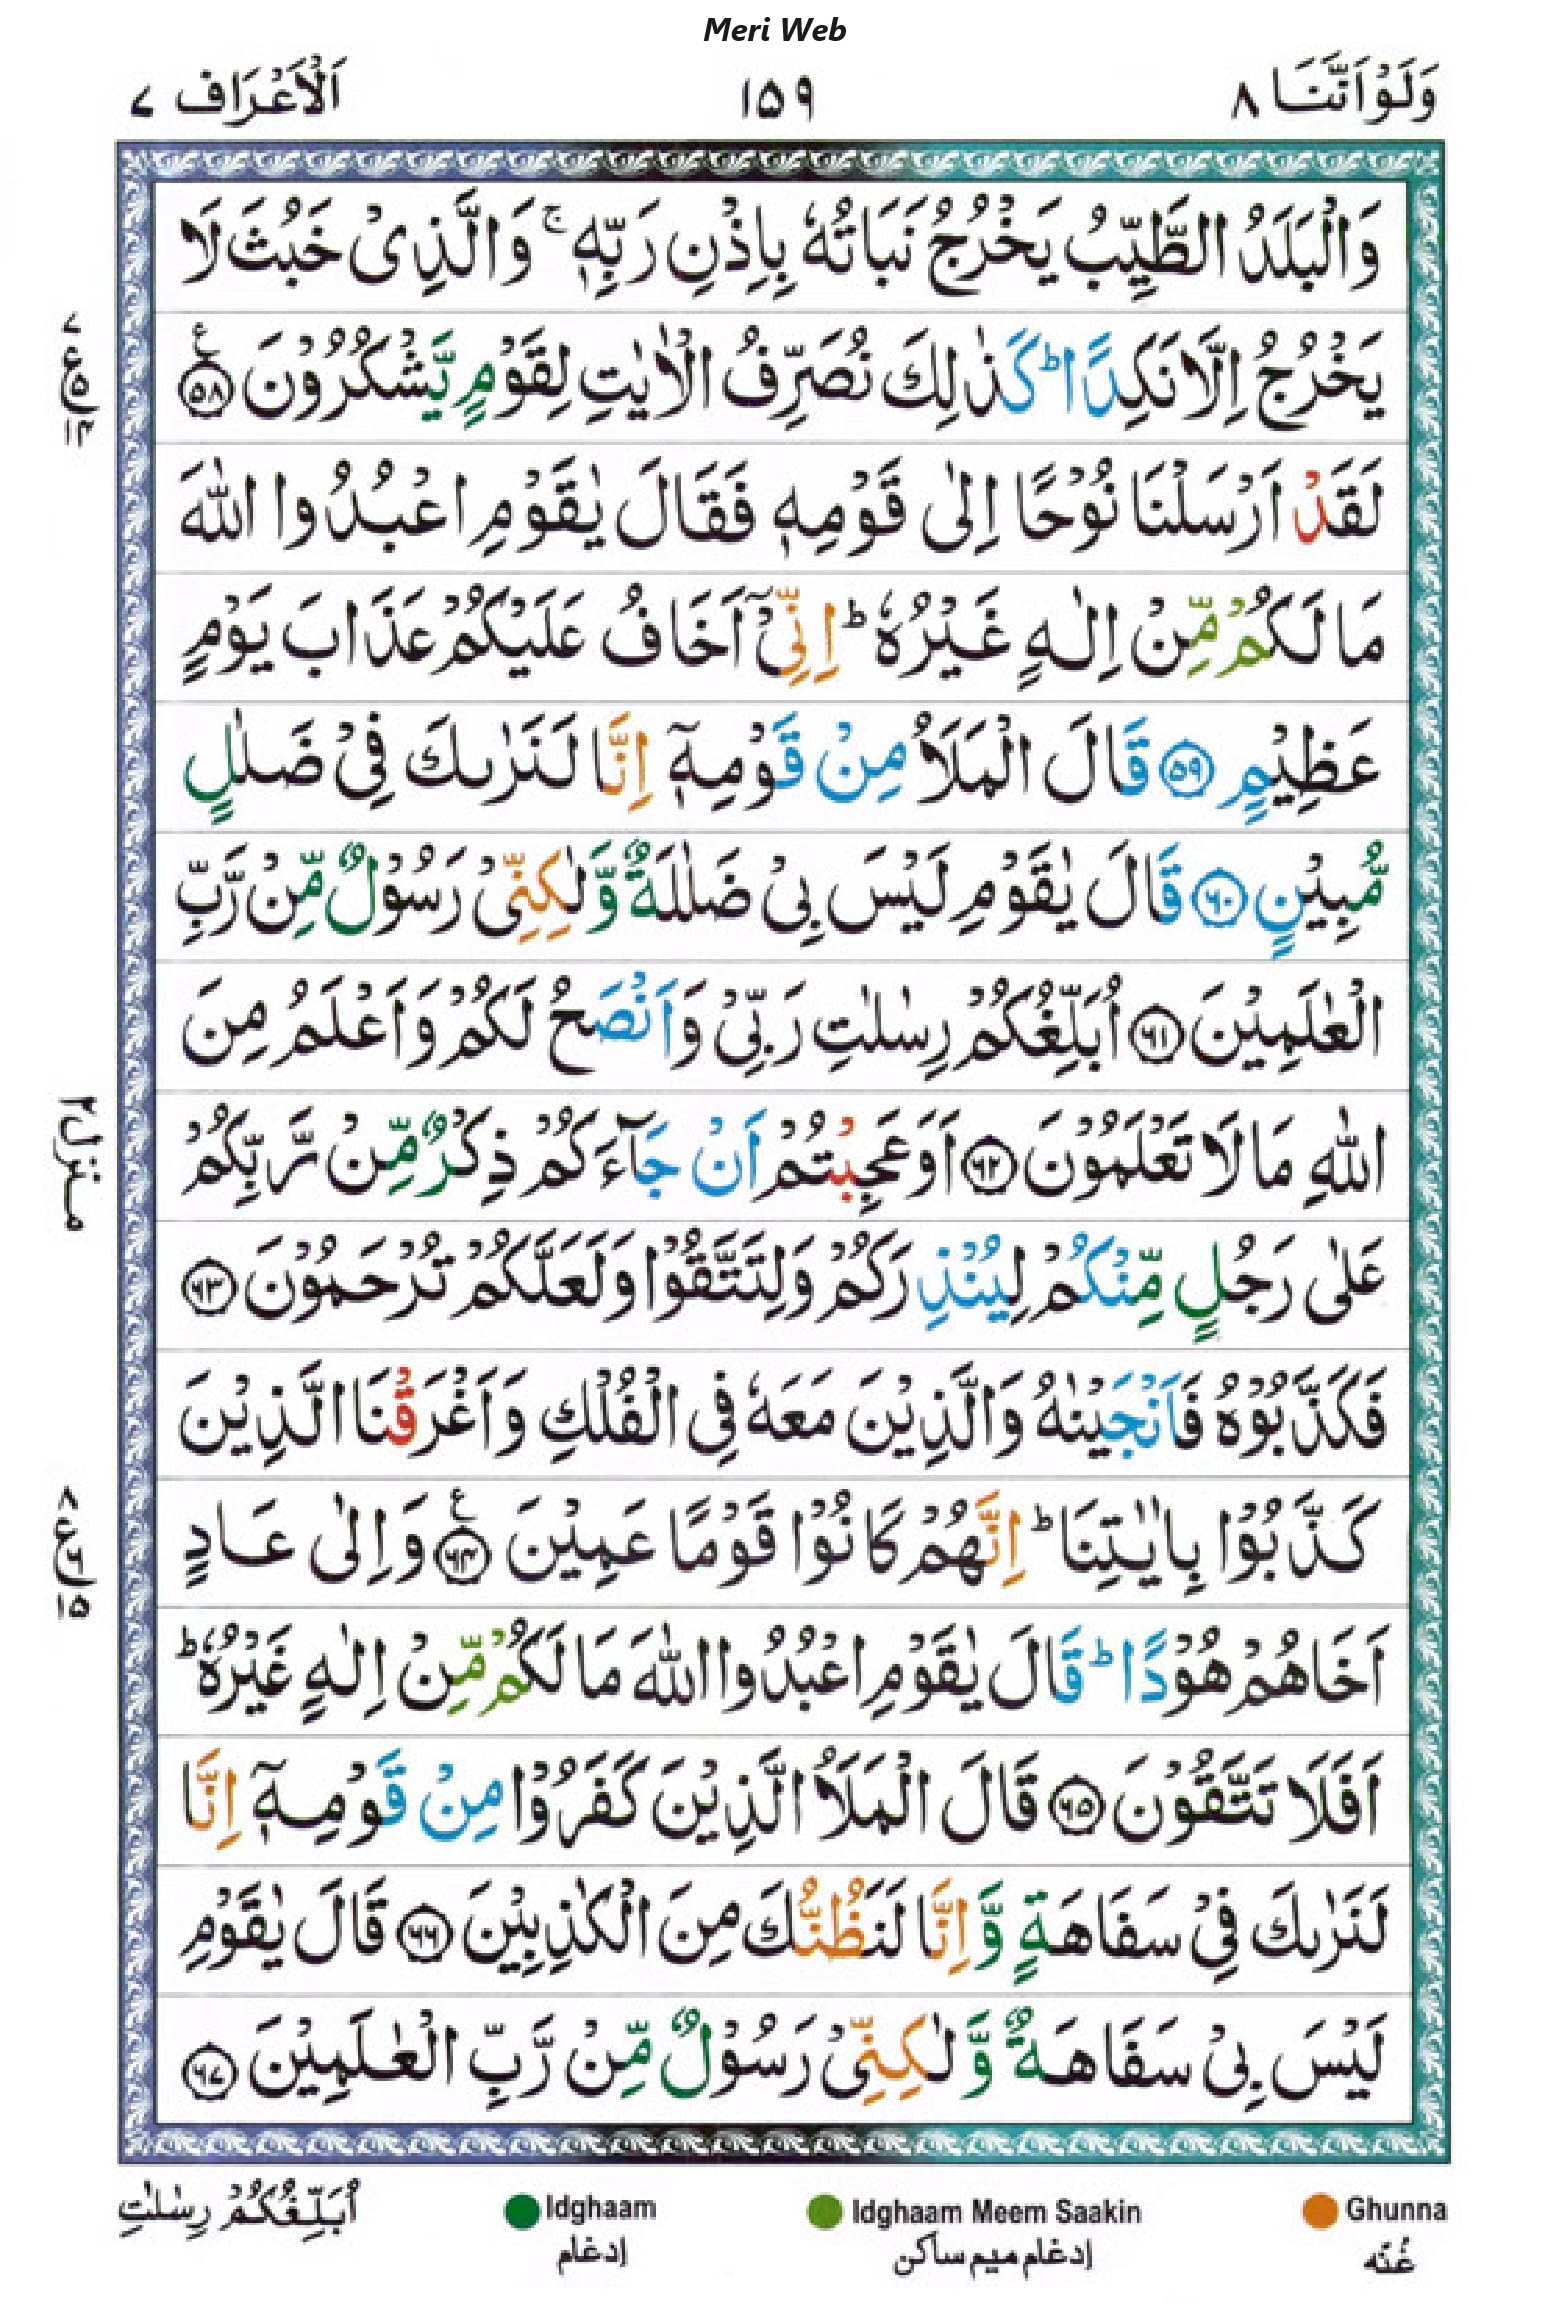 Meri Web
وَلَوْ اَنَّنَا ٨
١٥٩
اَلْاَعْرَاف ٧
وَالْبَلَدُ الطَّيِّبُ يَخْرُجُ نَبَاتُهٗ بِاِذْنِ رَبِّهٖ ۚ وَالَّذِىْ خَبُثَ لَا
يَخْرُجُ اِلَّا نَكِدًا ؕ كَذٰلِكَ نُصَرِّفُ الْاٰيٰتِ لِقَوْمٍ يَّشْكُرُوْنَ ع ۵۸
لَقَدْ اَرْسَلْنَا نُوْحًا اِلٰى قَوْمِهٖ فَقَالَ يٰقَوْمِ اعْبُدُوا اللّٰهَ
مَا لَكُمْ مِّنْ اِلٰهٍ غَيْرُهٗ ؕ اِنِّىْۤ اَخَافُ عَلَيْكُمْ عَذَابَ يَوْمٍ
عَظِيْمٍ ۵۹ قَالَ الْمَلَاُ مِنْ قَوْمِهٖۤ اِنَّا لَنَرٰىكَ فِىْ ضَلٰلٍ
مُّبِيْنٍ ۶۰ قَالَ يٰقَوْمِ لَيْسَ بِىْ ضَلٰلَةٌ وَّلٰكِنِّىْ رَسُوْلٌ مِّنْ رَّبِّ
الْعٰلَمِيْنَ ۶۱ اُبَلِّغُكُمْ رِسٰلٰتِ رَبِّىْ وَاَنْصَحُ لَكُمْ وَاَعْلَمُ مِنَ
اللّٰهِ مَا لَا تَعْلَمُوْنَ ۶۲ اَوَعَجِبْتُمْ اَنْ جَآءَكُمْ ذِكْرٌ مِّنْ رَّبِّكُمْ
عَلٰى رَجُلٍ مِّنْكُمْ لِيُنْذِرَكُمْ وَلِتَتَّقُوْا وَلَعَلَّكُمْ تُرْحَمُوْنَ ۶۳
فَكَذَّبُوْهُ فَاَنْجَيْنٰهُ وَالَّذِيْنَ مَعَهٗ فِى الْفُلْكِ وَاَغْرَقْنَا الَّذِيْنَ
كَذَّبُوْا بِاٰيٰتِنَا ؕ اِنَّهُمْ كَانُوْا قَوْمًا عَمِيْنَ ع ۶۴ وَاِلٰى عَادٍ
اَخَاهُمْ هُوْدًا ؕ قَالَ يٰقَوْمِ اعْبُدُوا اللّٰهَ مَا لَكُمْ مِّنْ اِلٰهٍ غَيْرُهٗ ؕ
اَفَلَا تَتَّقُوْنَ ۶۵ قَالَ الْمَلَاُ الَّذِيْنَ كَفَرُوْا مِنْ قَوْمِهٖۤ اِنَّا
لَنَرٰىكَ فِىْ سَفَاهَةٍ وَّاِنَّا لَنَظُنُّكَ مِنَ الْكٰذِبِيْنَ ۶۶ قَالَ يٰقَوْمِ
لَيْسَ بِىْ سَفَاهَةٌ وَّلٰكِنِّىْ رَسُوْلٌ مِّنْ رَّبِّ الْعٰلَمِيْنَ ۶۷
منزل ۲
اُبَلِّغُكُمْ رِسٰلٰتِ
Idghaam
إدغام
Idghaam Meem Saakin
إدغام ميم ساكن
Ghunna
غُنّه